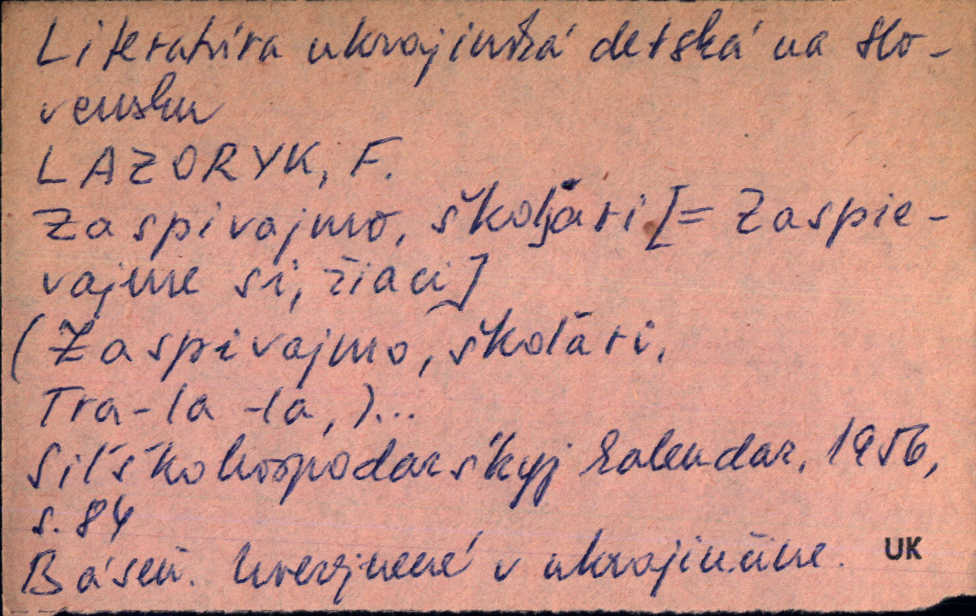 Literatúra ukrajinská detská na Slo-
vensku
LAZORYK, F.
Zaspivajmo, školjári [= Zaspie-
vajme si, žiaci]
(Zaspivajmo, školári,
Tra-la-la,)...
Siľskohospodarśkyj kalendar, 1956,
s. 84
Báseň. Uverejnené v ukrajinčine. UK